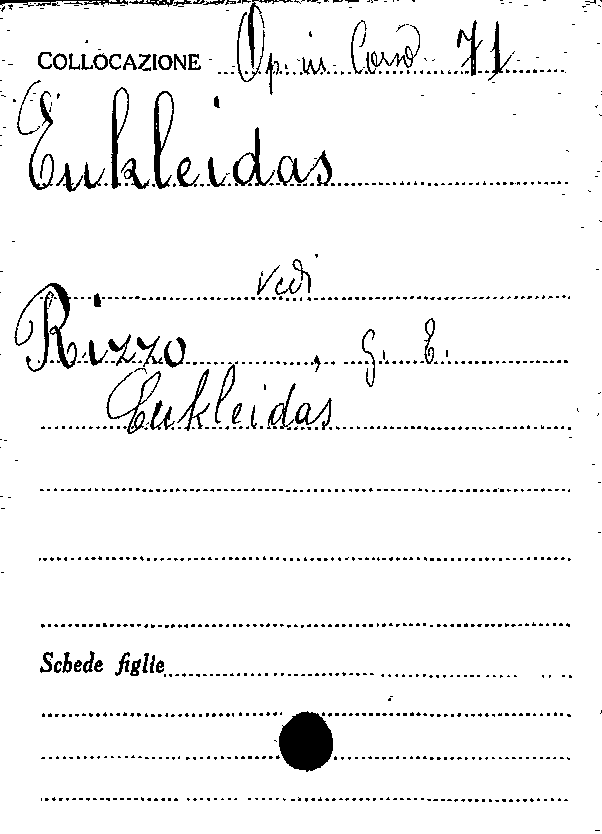 COLLOCAZIONE Op. in Corso 71
Eukleidas
vedi
Rizzo, G. E.
Eukleidas
Schede figlie